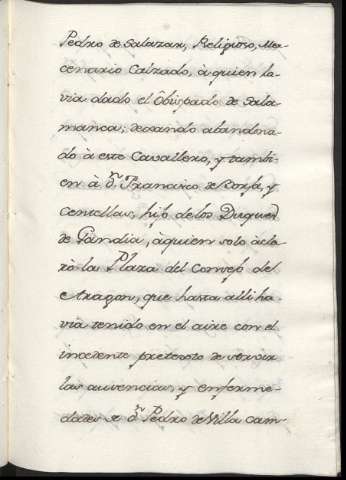 Pedro de Salazar, Religioso, Mer-
cenario Calzado, à quien ha-
via dado el Obispado de Sala-
manca; dexando abandona-
do à este Cavallero, y tambi-
en à Dn. Francisco de Borja, y
Centellas, hijo de los Duques
de Gandia, àquien solo àcla-
rò la Plaza del Consejo de
Aragon, que hasta alli ha-
via tenido en el aire con el
incedente pretexto de servir
las auvencias, y enferme-
dades de Dn. Pedro de Villa cam-